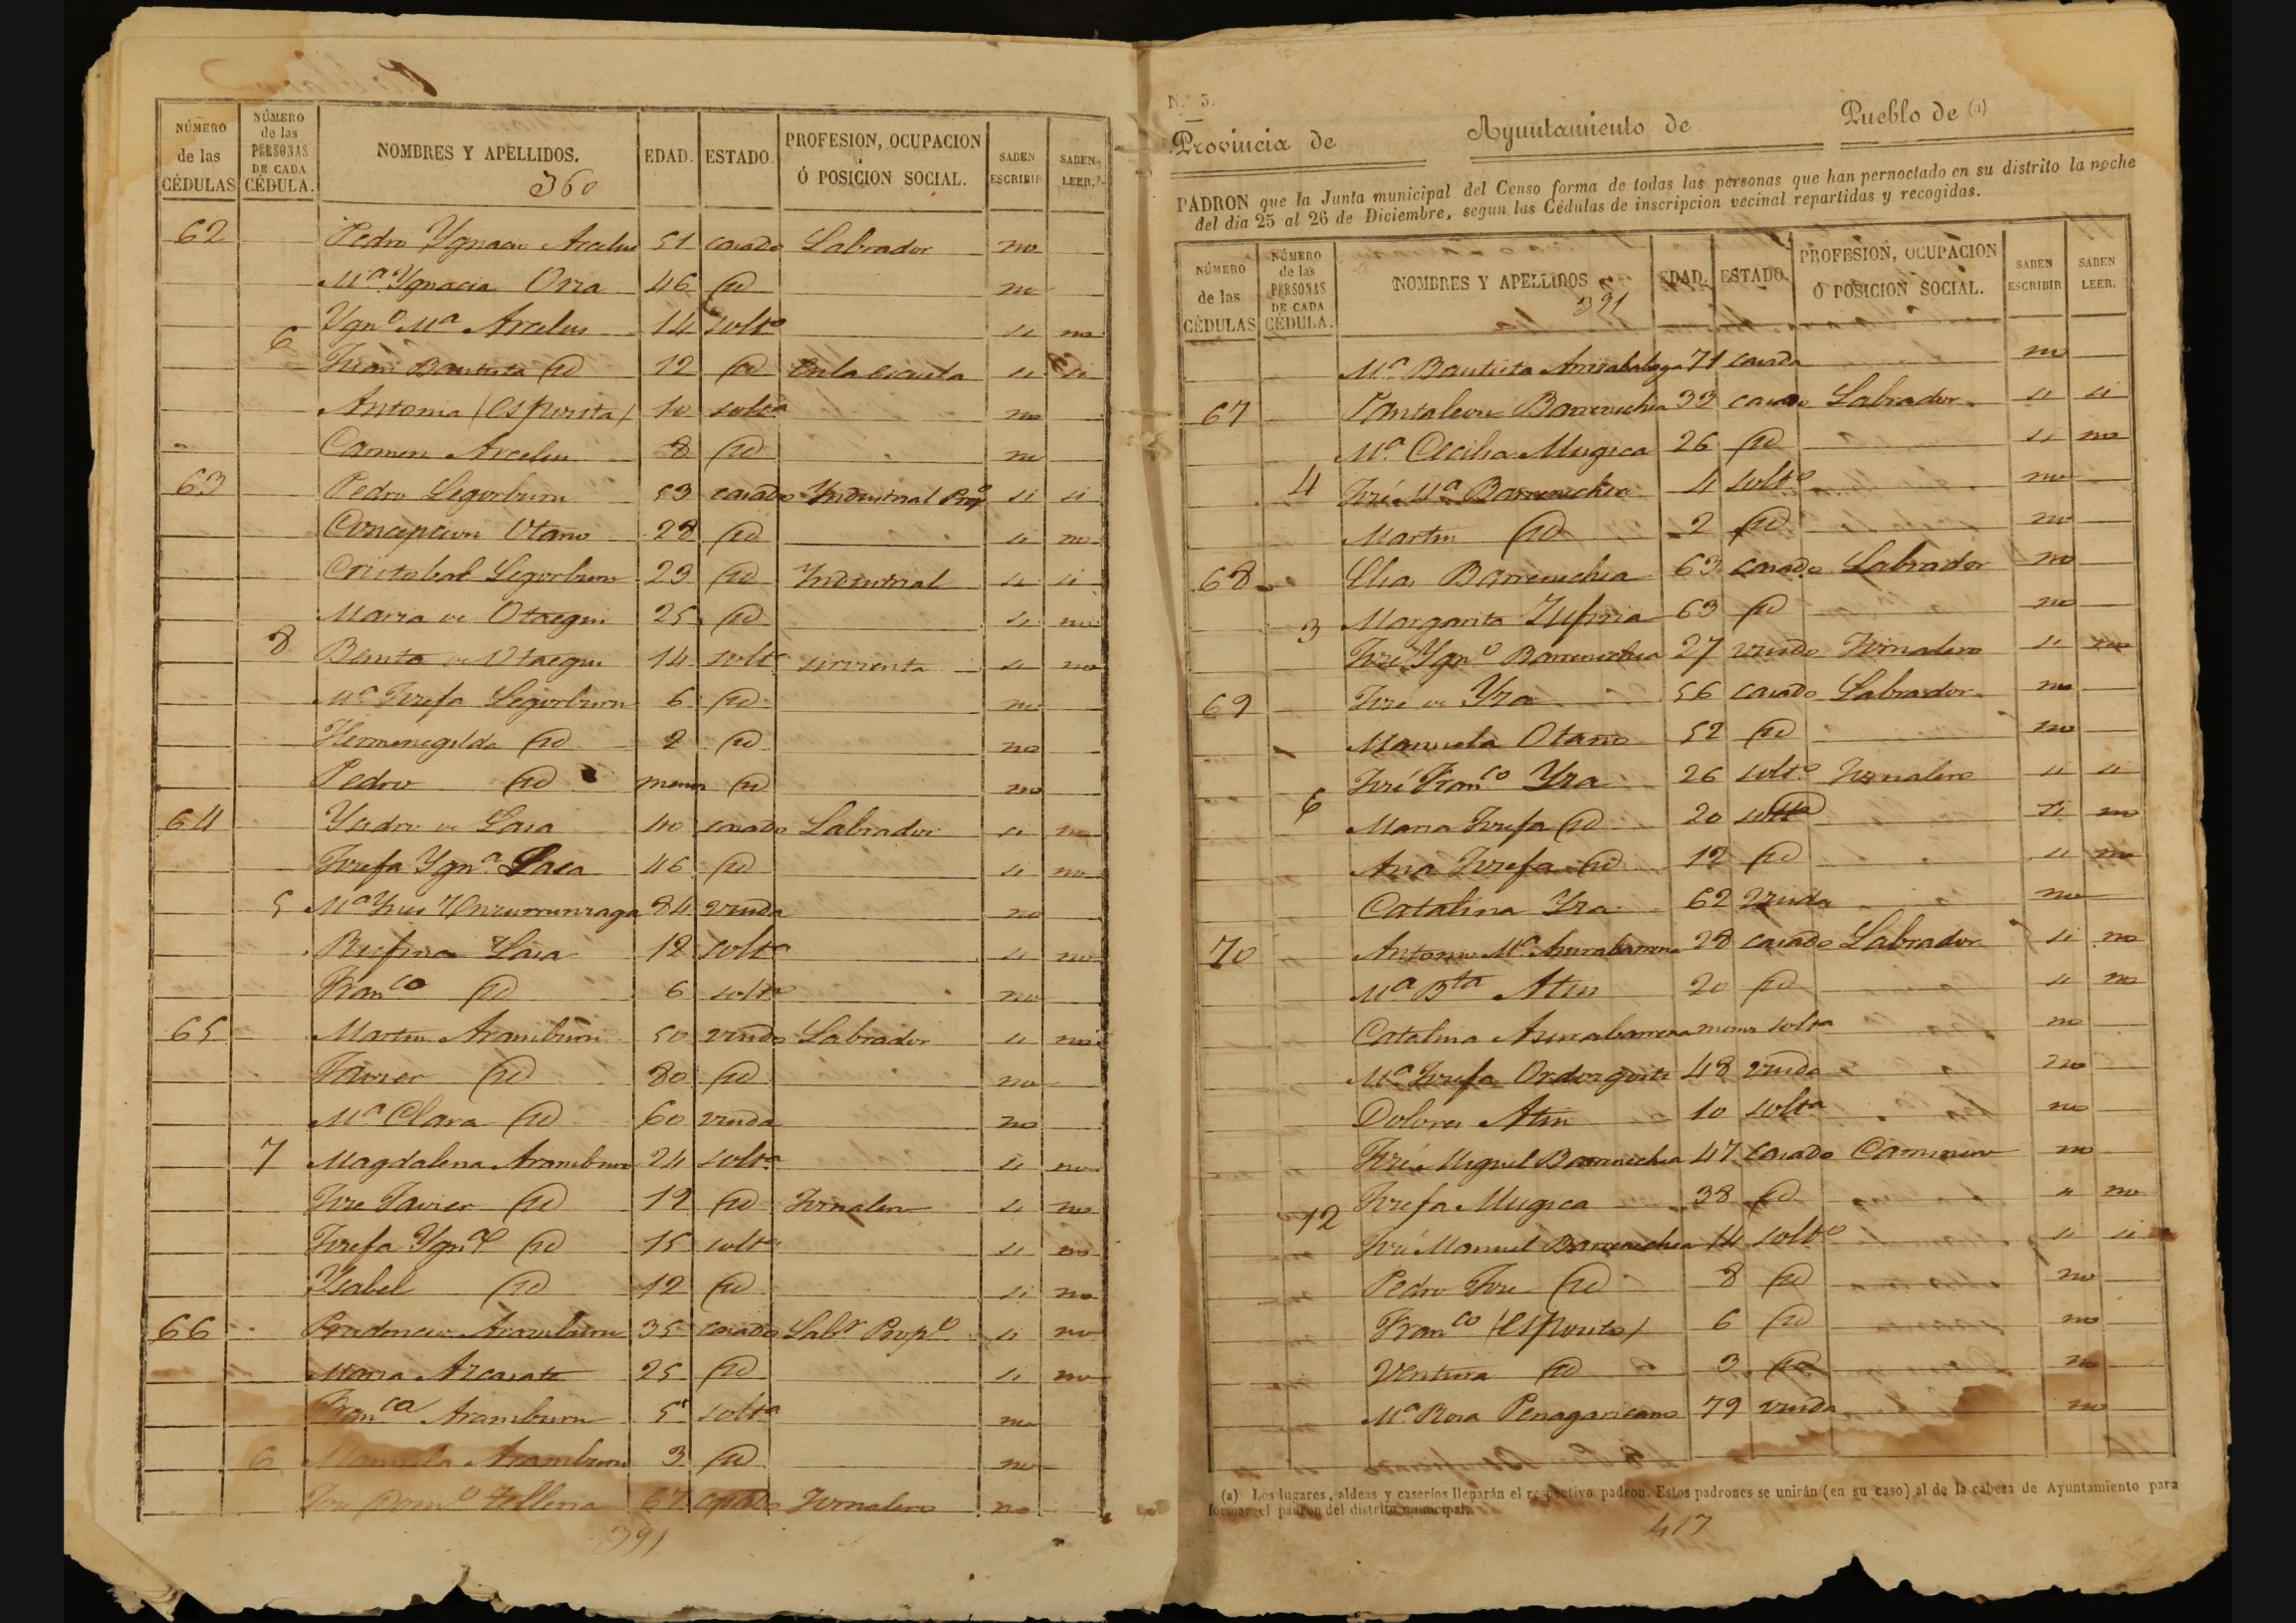 NÚMERO de las CÉDULAS NÚMERO de las PERSONAS DE CADA CÉDULA. NOMBRES Y APELLIDOS. EDAD. ESTADO. PROFESION, OCUPACION Ó POSICION SOCIAL. SABEN ESCRIBIR SABEN LEER.
360
62 Pedro Ygnacio Arcelus 51 casado Labrador no
Mª Ygnacia Orra 46 id no
Ygnº Mª Arcelus 14 soltº si no
6 Juan Bautista id 12 id En la escuela si si
Antonia (esposita) 10 soltª no
Carmen Arcelus 8 id no
63 Pedro Legorburu 53 casado Yndustrial Propº si si
Concepcion Otaño 28 id si no
Cristobal Legorburu 29 id Yndustrial si si
Maria de Otaegui 25 id si no
8 Benita de Otaegui 14 soltª sirvienta si no
Mª Josefa Legorburu 6 id no
Hermenegilda id 2 id no
Pedro id menor id no
64 Ysidro de Lasa 40 casado Labrador si no
Josefa Ygnª Lasa 46 id si no
5 Mª 84 viuda no
Rufina Lasa 12 soltª si no
Francº id 6 soltº no
65 Martin Aramburu 50 viudo Labrador si no
Javier id 80 id no
Mª Clara id 60 viuda no
7 Magdalena Aramburu 24 soltª si no
Jose Javier id 19 id Jornalero si no
Josefa Ygnª id 15 soltª si no
Ysabel id 12 id si no
66 Prudencio Aramburu 35 casado Labr Propº si no
Maria Azcarate 25 id si no
Francª Aramburu 5 soltª no
6 Manuela Aramburu 3 id no
Jose Domº Telleria 67 casado Jornalero no
391
N.º 3.
Provincia de Ayuntamiento de Pueblo de (a)
PADRON que la Junta municipal del Censo forma de todas las personas que han pernoctado en su distrito la noche
del dia 25 al 26 de Diciembre, segun las Cédulas de inscripcion vecinal repartidas y recogidas.
NÚMERO de las CÉDULAS NÚMERO de las PERSONAS DE CADA CÉDULA. NOMBRES Y APELLIDOS EDAD. ESTADO. PROFESION, OCUPACION Ó POSICION SOCIAL. SABEN ESCRIBIR SABEN LEER.
391
Mª Bautista Arrizabalaga 71 casada no
67 Pantaleon Barrenechea 33 casado Labrador si si
Mª Cecilia Mugica 26 id si no
4 José Mª Barrenechea 4 soltº no
Martin id 2 id no
68 Elias Barrenechea 63 casado Labrador no
3 Margarita Zufiria 63 id no
José Ygnº Barrenechea 27 viudo Jornalero si no
69 José de Yza 56 casado Labrador no
Manuela Otaño 52 id no
José Francº Yza 26 soltº Jornalero si si
6 Maria Josefa id 20 soltª si no
Ana Josefa id 12 id si no
Catalina Yza 62 viuda no
70 Antonio Mª Asurabarrena 28 casado Labrador si no
Mª Bta Atin 20 id si no
Catalina Asurabarrena menor soltª no
Mª Josefa Ordozgoiti 48 viuda no
Dolores Atin 10 soltª no
José Miguel Barrenechea 47 casado Caminero no
12 Josefa Mugica 38 id si no
José Manuel Barrenechea 14 soltº si si
Pedro Jose id 8 id no
Francº (esposito) 6 id no
Ventura id 3 id no
Mª Rosa Penagaricano 79 viuda no
(a) Los lugares, aldeas y caseríos llenarán el respectivo padron. Estos padrones se unirán (en su caso) al de la cabeza de Ayuntamiento para
formar el padron del distrito municipal.
417